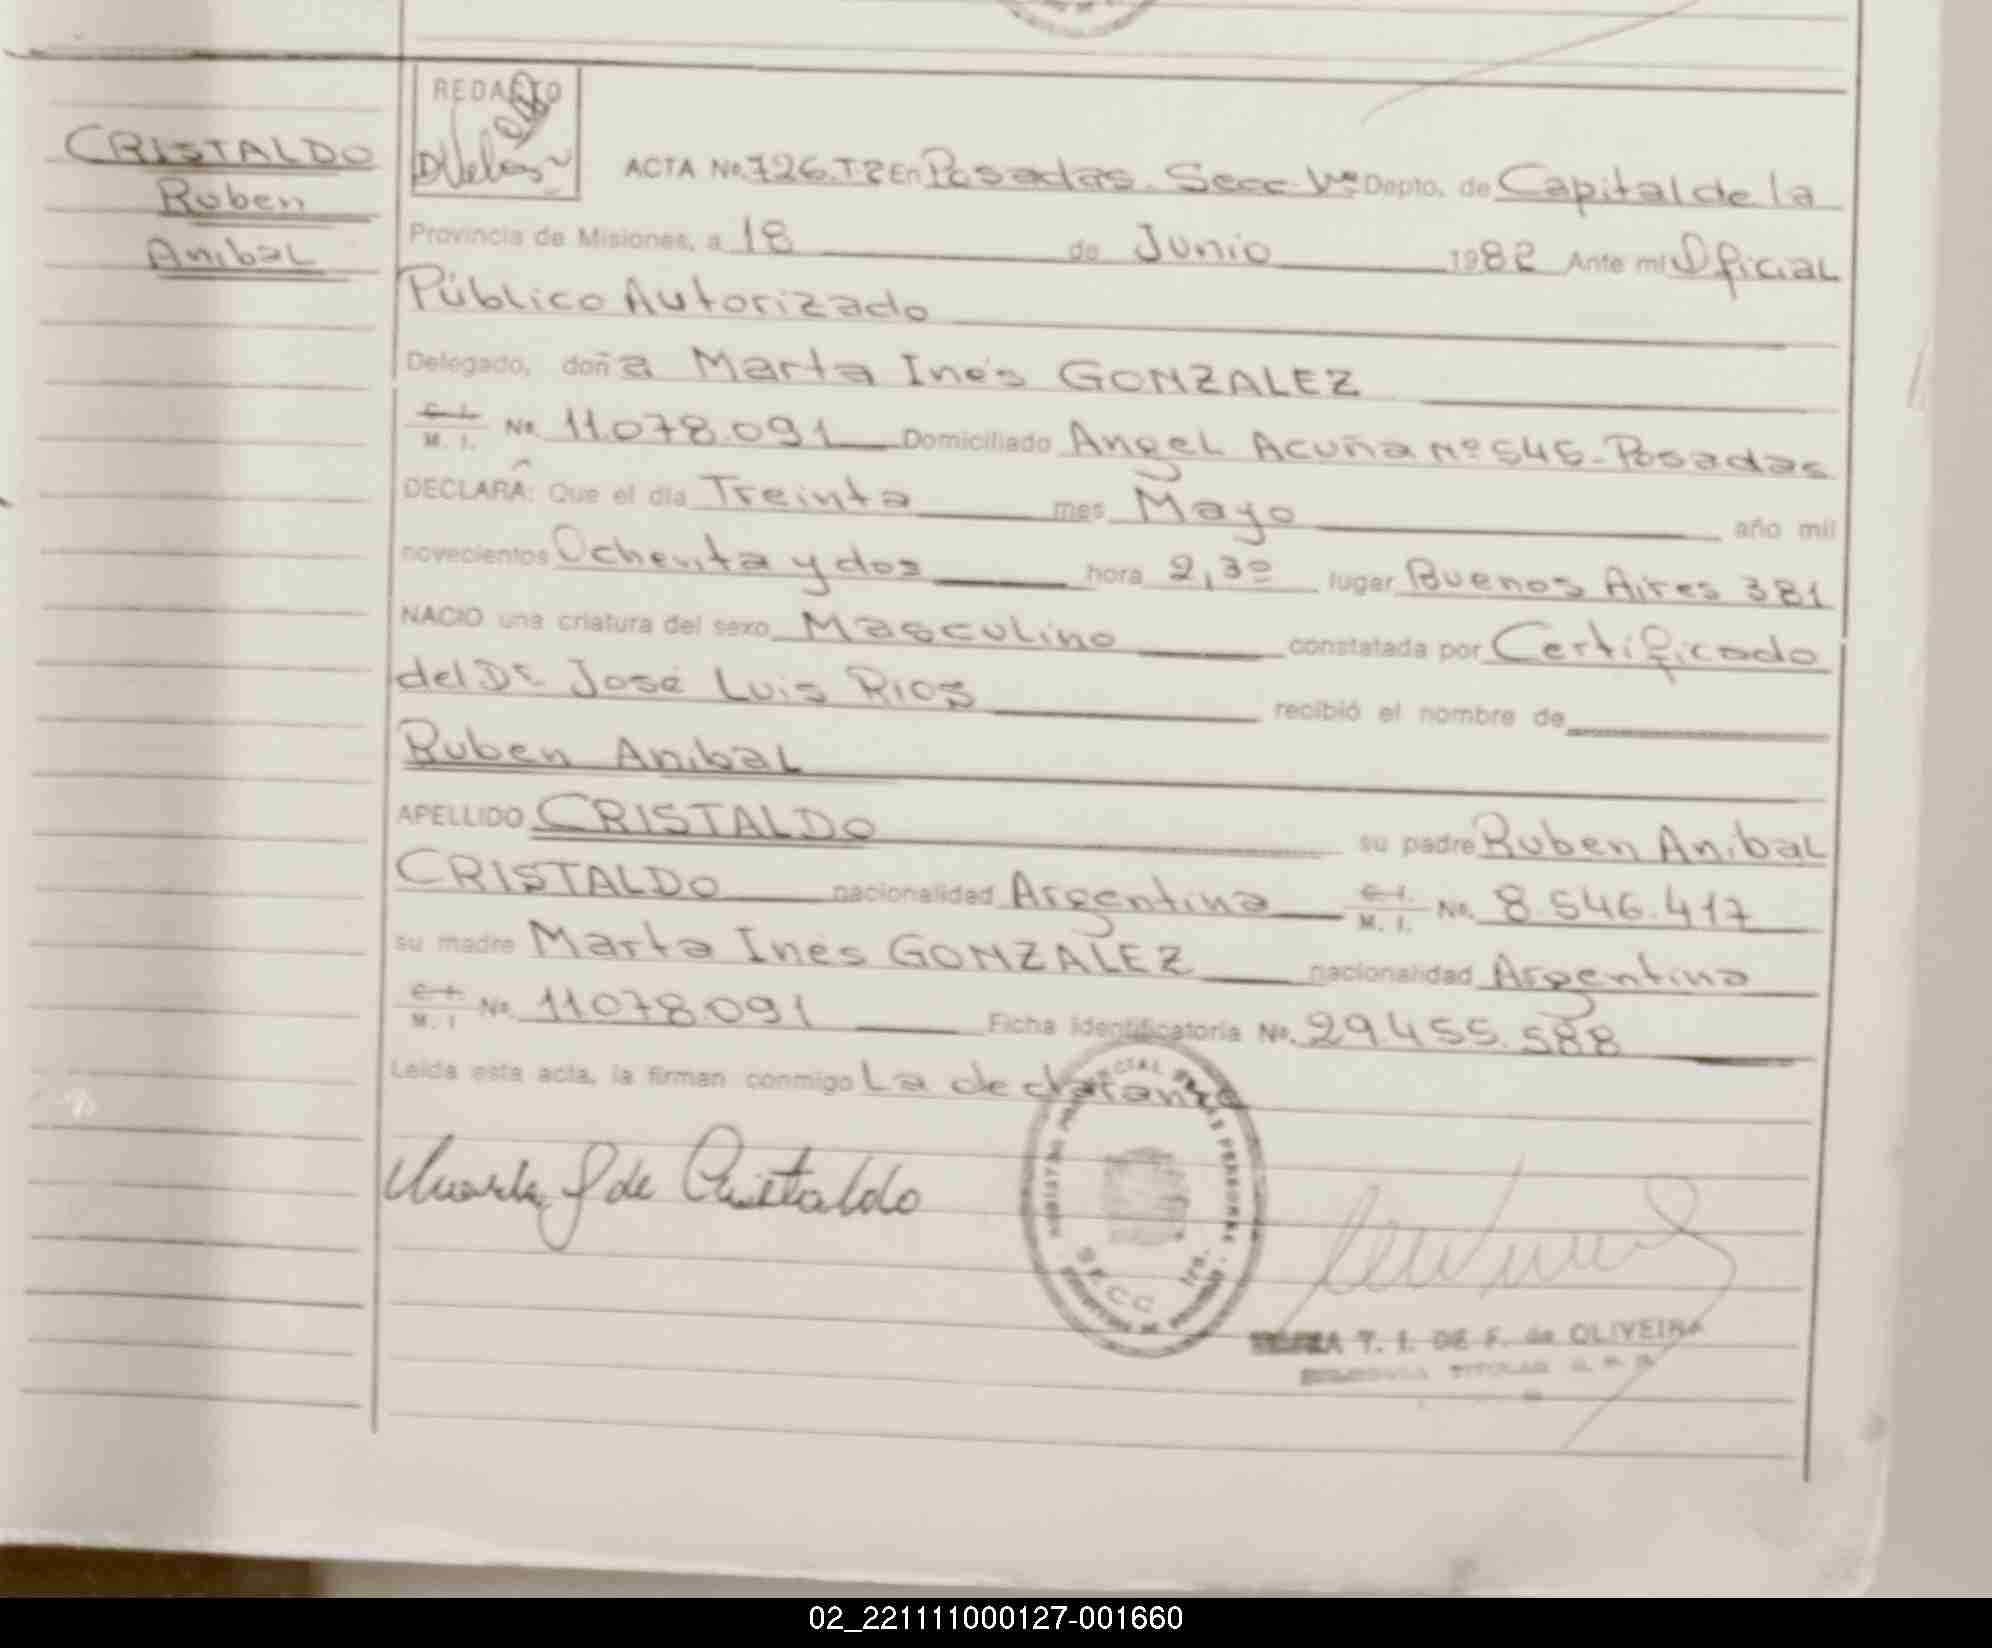 REDACTO
CRISTALDO
Ruben
Anibal
ACTA No. 726. T.2 En Posadas. Secc. 1ª Depto. de Capital de la
Provincia de Misiones, a 18 de Junio 1982 Ante mi Oficial
Público Autorizado
Delegado, doña Marta Inés GONZALEZ
C. I. M. I. No. 11.078.091 Domiciliado Angel Acuña Nº 545 - Posadas
DECLARA: Que el día Treinta mes Mayo año mil
novecientos Ochenta y dos hora 2,30 lugar Buenos Aires 381
NACIO una criatura del sexo Masculino constatada por Certificado
del Dr. José Luis Rios recibió el nombre de
Ruben Anibal
APELLIDO CRISTALDO su padre Ruben Anibal
CRISTALDO nacionalidad Argentina C. I. M. I. No. 8.546.417
su madre Marta Inés GONZALEZ nacionalidad Argentina
C. I. M. I. No. 11078.091 Ficha identificatoria No. 29.455.588
Leida esta acta, la firman conmigo La declarante
Marta G de Cristaldo
SECC 1ra.
T. I. DE F. de OLIVEIRA
TITULAR
02_221111000127-001660